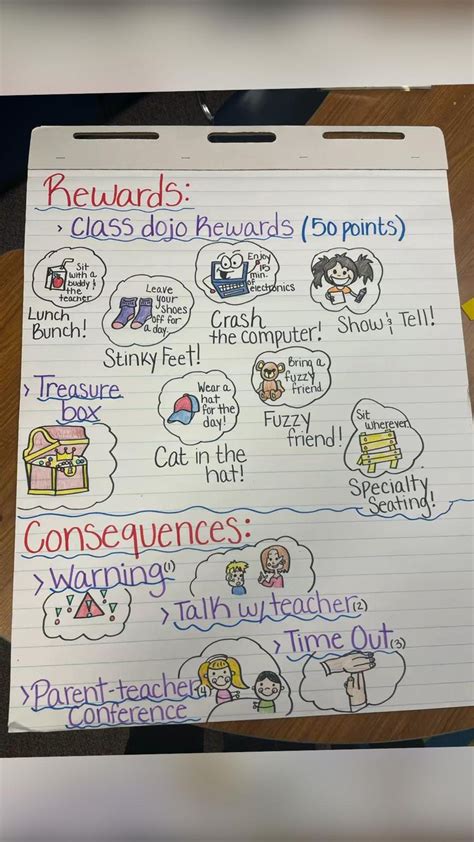 Rewards:
> Class dojo Rewards (50 points)
Sit
with a
buddy &
the
teacher
Lunch
Bunch!
Leave
your
shoes
off for
a day.
Stinky Feet!
Enjoy
15
min.
of
electronics
Crash
the computer!
Show & Tell!
> Treasure
box
Wear a
hat
for the
day!
Cat in the
hat!
Bring a
fuzzy
friend.
Fuzzy
friend!
Sit
wherever.
Specialty
Seating!
Consequences:
> Warning (1)
> Talk w/ teacher (2)
> Time Out (3)
> Parent-teacher (4)
Conference